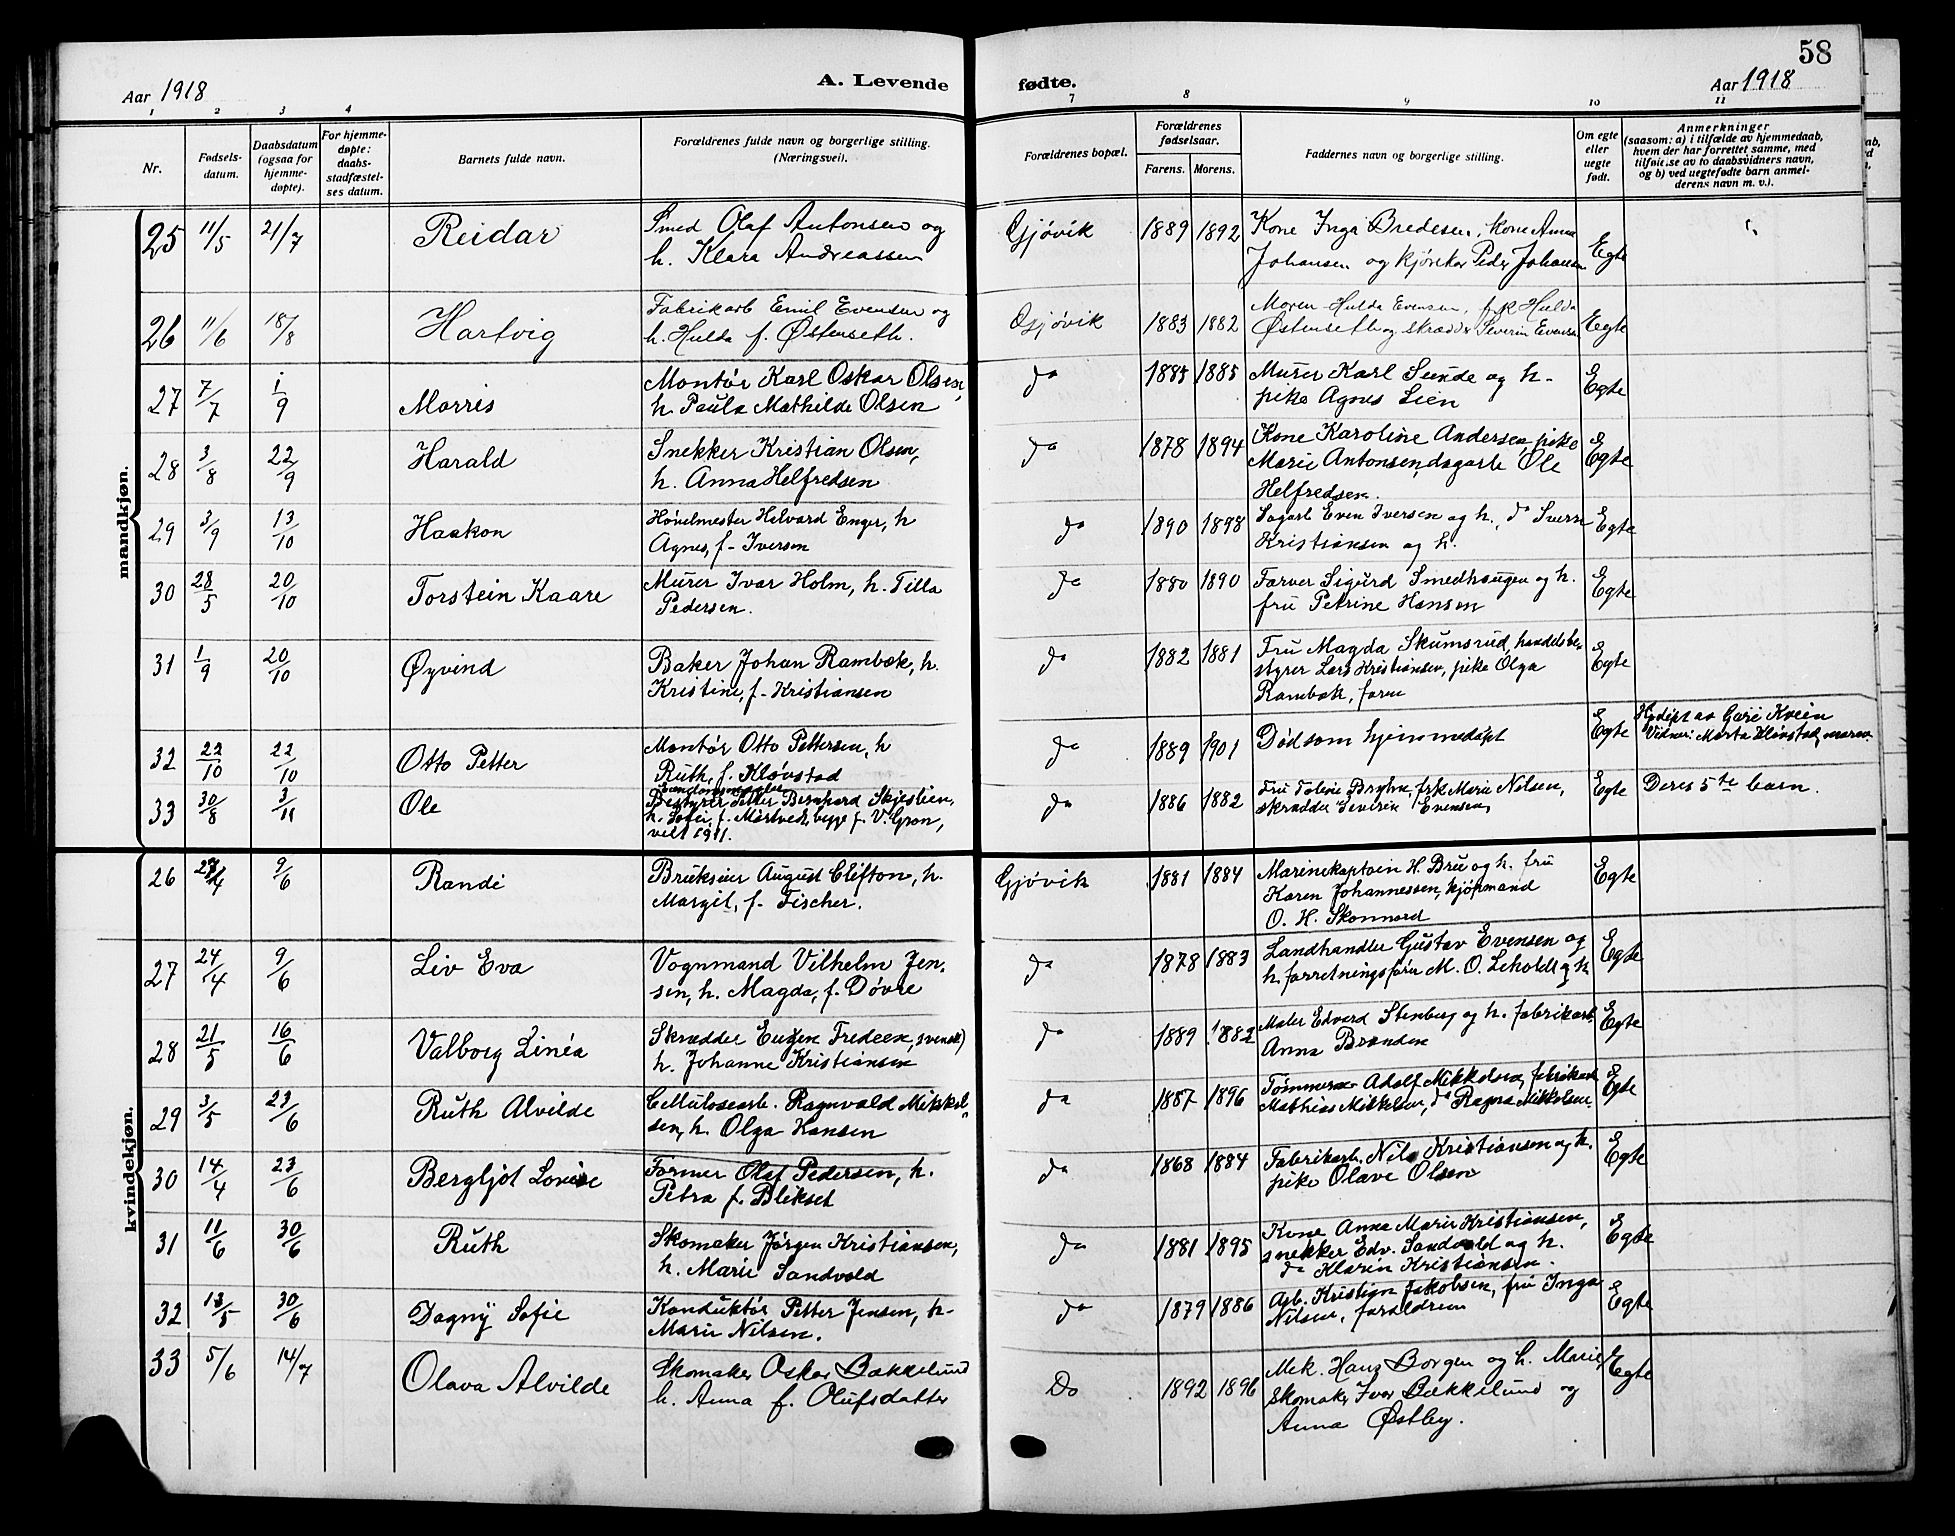 58
Aar 1918
A. Levende
fødte.
Aar 1918
1 2 3 4 7 8 9 10 11
Nr.
Fødsels-
datum.
Daabsdatum
(ogsaa for
hjemme-
døpte).
For hjemme-
døpte:
daabs-
stadfæstel-
ses datum.
Barnets fulde navn.
Forældrenes fulde navn og borgerlige stilling.
(Næringsvei).
Forældrenes bopæl.
Forældrenes
fødselsaar.
Farens. Morens.
Faddernes navn og borgerlige stilling.
Om egte
eller
uegte
født.
Anmerkninger
(saasom: a) i tilfælde av hjemmedaab,
hvem der har forrettet samme, med
tilføielse av to daabsvidners navn,
og b) ved uegtefødte barn anmel-
derens navn m. v.).
mandkjøn.
25 11/5 21/7 Reidar Smed Olaf Antonsen og
h. Klara Andreassen
Gjøvik 1889 1892 Kone Inga Bredesen, kone Anna
Johansen og kjørekar Peder Johansen
Egte
26 11/6 18/8 Hartvig Fabrikarb Emil Evensen og
h. Hulda f. Østenseth.
Gjøvik 1883 1882 Moren Hulda Evensen, frk Hulda
Østenseth og skrædder Severin Evensen
Egte
27 7/7 1/9 Morris Montør Karl Oskar Olsen,
h. Paula Mathilde Olsen
do 1885 1885 Murer Karl Sunde og h.
pike Agnes Lien
Egte
28 3/8 22/9 Harald Snekker Kristian Olsen,
h. Anna Helfredsen
do 1878 1894 Kone Karoline Andersen, pike
Marie Antonsen, dagarb Ole
Helfredsen.
Egte
29 3/9 13/10 Haakon Høvelmester Helvard Enger, h
Agnes, f. Iversen
do 1890 1898 Sagarb Even Iversen og h., do Sverre
Kristiansen og h.
Egte
30 28/5 20/10 Torstein Kaare Murer Ivar Holm, h. Tilla
Pedersen.
do 1880 1890 Farver Sigurd Smedhaugen og h.
fru Petrine Hansen
Egte
31 1/9 20/10 Øyvind Baker Johan Rambæk, h.
Kristine, f. Kristiansen
do 1882 1881 Fru Magda Skumsrud, handelsbe-
styrer Lars Kristiansen, pike Olga
Rambæk, faren
Egte
32 22/10 22/10 Otto Petter Montør Otto Pettersen, h
Ruth, f. Kløvstad
do 1889 1901 Død som hjemmedøpt
Egte Hj.døpt av Gari Kveen
Vidner: Marta Kløvstad, moren
33 30/8 3/11 Ole
Bestyrer Petter Bernhard Skjeslien,
h. Sofie, f. Mørtvedt, begge f. V. Gran,
viet 1911.
do 1886 1882 Fru Toline Bryhn, frk Marie Nilsen,
skrædder Severin Evensen,
Egte Deres 5te barn.
kvindekjøn.
26 27/4 9/6 Randi Brukseier August Clifton, h.
Margit, f. Fischer.
Gjøvik 1881 1884 Marinekaptein H. Bru og h. fru
Karen Johannessen, kjøpmand
O. H. Skonnord
Egte
27 24/4 9/6 Liv Eva Vognmand Vilhelm Jen-
sen, h. Magda, f. Døvre
do 1878 1883 Landhandler Gustav Evensen og
h. forretningsfører M. O. Leholdt og h
Egte
28 21/5 16/6 Valborg Linéa Skrædder Eugen Fredeen, svensk)
h. Johanne Kristiansen
do 1889 1882 Maler Edvard Stenberg og h. fabrikarb.
Anna Brænden
Egte
29 3/5 23/6 Ruth Alvilde Cellulosearb. Ragnvald Mikkel-
sen, h. Olga Hansen
do 1887 1896 Tømmerm Adolf Mikkelsen, fabrikarb
Mathias Mikkelsen, do Ragna Mikkelsen.
Egte
30 14/4 23/6 Bergljot Lovise Former Olaf Pedersen, h.
Petra f. Blikset
do 1868 1884 Fabrikarb. Nils Kristiansen og h.
pike Olave Olsen
Egte
31 11/6 30/6 Ruth Skomaker Jørgen Kristiansen,
h. Marie Sandvold
do 1881 1895 Kone Anna Marie Kristiansen,
snekker Edv. Sandvold og h.
do Klarin Kristiansen.
Egte
32 13/5 30/6 Dagny Sofie Konduktør Petter Jensen, h.
Marie Nilsen.
do 1879 1886 Arb. Kristian Jakobsen, fru Inga
Nilsen, forældrene
Egte
33 5/6 14/7 Olava Alvilde Skomaker Oskar Bækkelund
h. Anna f. Olufsdatter
Do 1892 1896 Mek. Hans Borgen og h. Marie,
Skomaker Ivar Bækkelund og
Anna Østby.
Egte